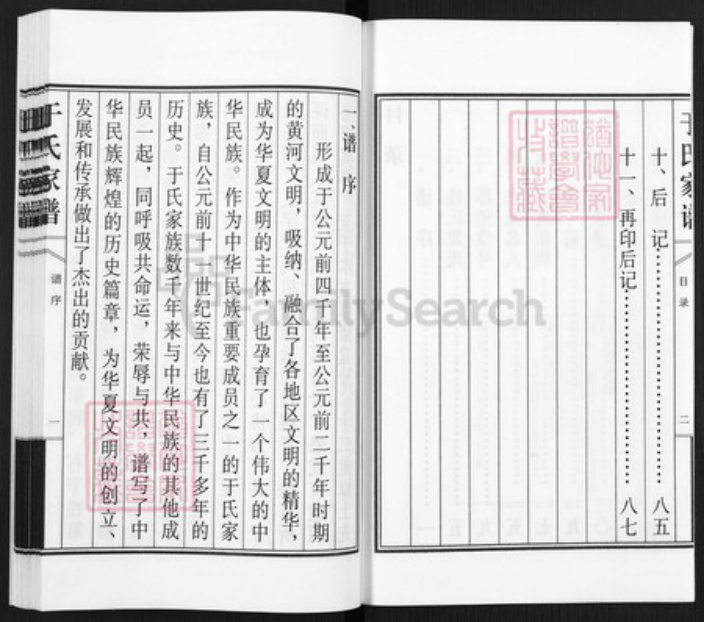 于氏家谱
目录
二
十、后 记……………………八五
十一、再印后记……………………八七
一、谱 序
形成于公元前四千年至公元前二千年时期
的黄河文明，吸纳、融合了各地区文明的精华，
成为华夏文明的主体，也孕育了一个伟大的中
华民族。作为中华民族重要成员之一的于氏家
族，自公元前十一世纪至今也有了三千多年的
历史。于氏家族数千年来与中华民族的其他成
员一起，同呼吸共命运，荣辱与共，谱写了中
华民族辉煌的历史篇章，为华夏文明的创立、
发展和传承做出了杰出的贡献。
于氏家谱
谱序
一
FamilySearch